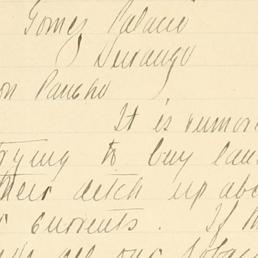 Gomez Palacio
Durango
on Pancho
It is rumor
rying to buy lan
their ditch up abo
r currents. If th
all our tobac